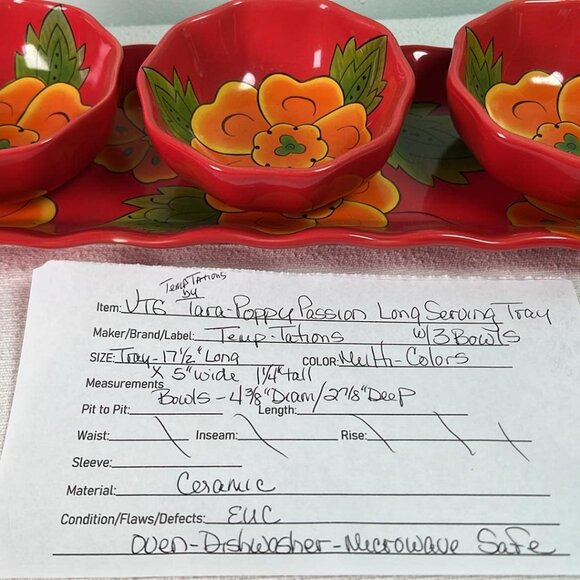 Temp Tations
by
Item: VTG Tara-Poppy Passion Long Serving Tray
Maker/Brand/Label: Temp-tations w/3 Bowls
SIZE: Tray-17½" Long COLOR: Multi-Colors
X 5" wide 1¼" tall
Measurements
Bowls - 4⅜" Diam/2⅞" Deep
Pit to Pit: Length:
Waist: Inseam: Rise:
Sleeve:
Material: Ceramic
Condition/Flaws/Defects: EUC
Oven-Dishwasher-Microwave Safe